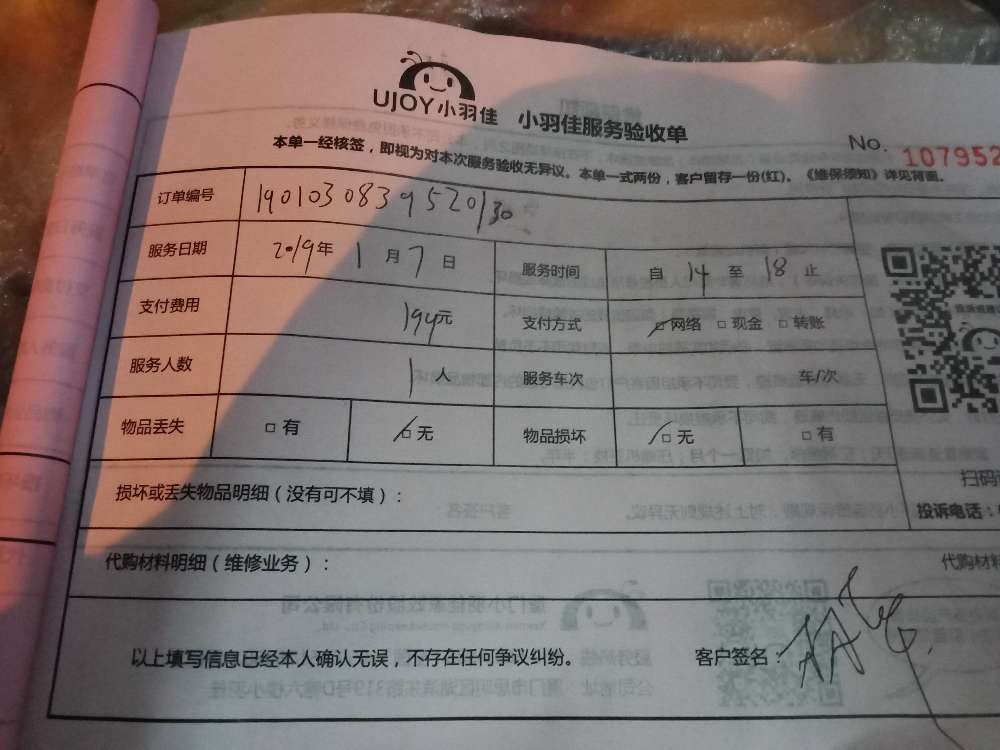 UJOY小羽佳 小羽佳服务验收单
No. 107952
本单一经核签，即视为对本次服务验收无异议。本单一式两份，客户留存一份(红)。《维保须知》详见背面。
订单编号 1901030839520130
服务日期 2019年 1月 7日 服务时间 自 14 至 18 止
支付费用 194元 支付方式 网络 现金 转账
服务人数 1人 服务车次 车/次
物品丢失 有 无 物品损坏 无 有
损坏或丢失物品明细（没有可不填）：
扫码
投诉电话：
代购材料明细（维修业务）：
代购材料
以上填写信息已经本人确认无误，不存在任何争议纠纷。 客户签名：